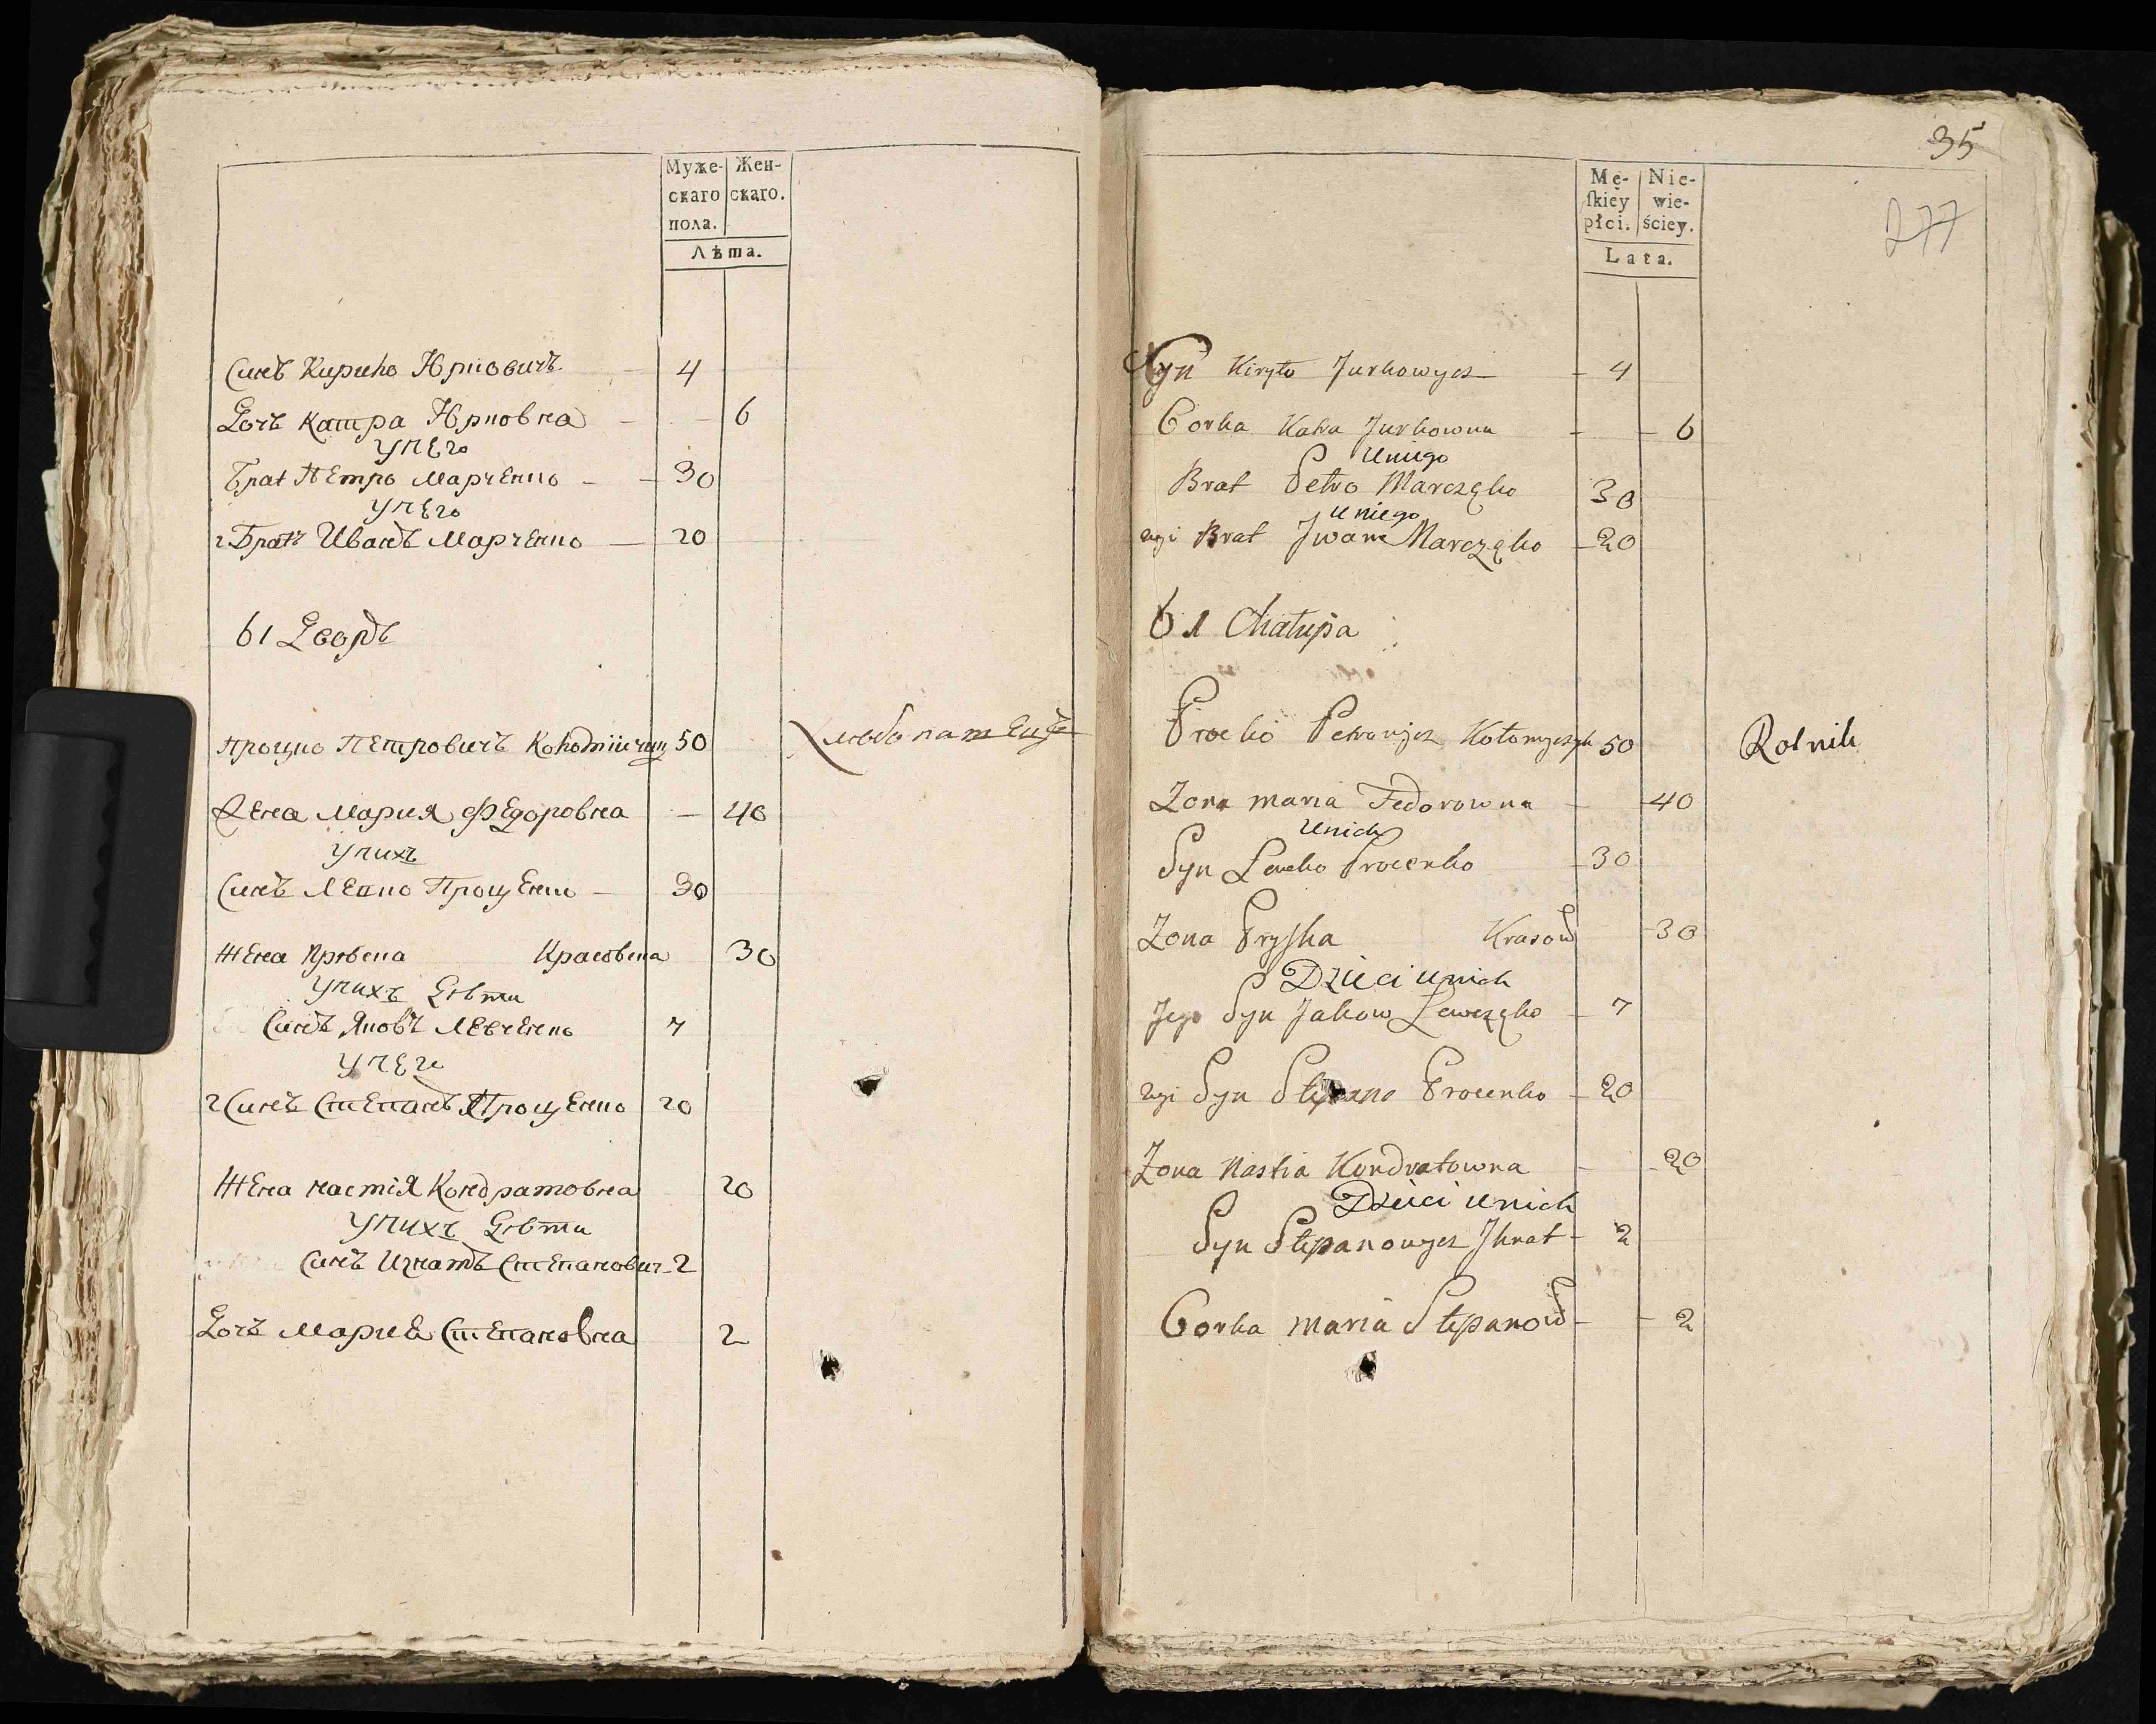 Муже-
скаго
пола.
Жен-
скаго.
Лѣта.
Синъ Кирило Юрковичъ 4
Дочъ Катра Юрковна 6
У него
Братъ Петро Марченко 30
У него
2 Братъ Иванъ Марченко 20
61 Дворъ
Процко Петровичъ Коломійчук 50 хлебопашець
Жена Мария Федоровна 40
У нихъ
Синъ Левко Проценко 30
Жена Прѣска Красовска 30
У нихъ Дѣти
Синъ Яковъ Левченко 7
У него
2 Синъ Степанъ Проценко 20
Жена Настія Кондратовна 20
У нихъ Дѣти
Синъ Игнатъ Степанович 2
Дочъ Мария Степановна 2
35
277
Mę-
ſkiey
płci.
Nie-
wie-
ściey.
Lata.
Syn Kiryło Jurkowycz 4
Corka Katra Jurkowna 6
U niego
Brat Petro Marczęko 30
U niego
2gi Brat Jwan Marczęko 20
61 Chałupa
Procko Petrowycz Kołomyczyk 50 Rolnik
Zona Maria Fedorowna 40
U nich
Syn Lewko Procenko 30
Zona Pryſka Krasow 30
Dzieci u nich
Jego Syn Jakow Lewczęko 7
2gi Syn Stepano Procenko 20
Zona Nastia Kondratowna 20
Dzieci u nich
Syn Stepanowycz Jhnat 2
Corka Maria Stepanow 2